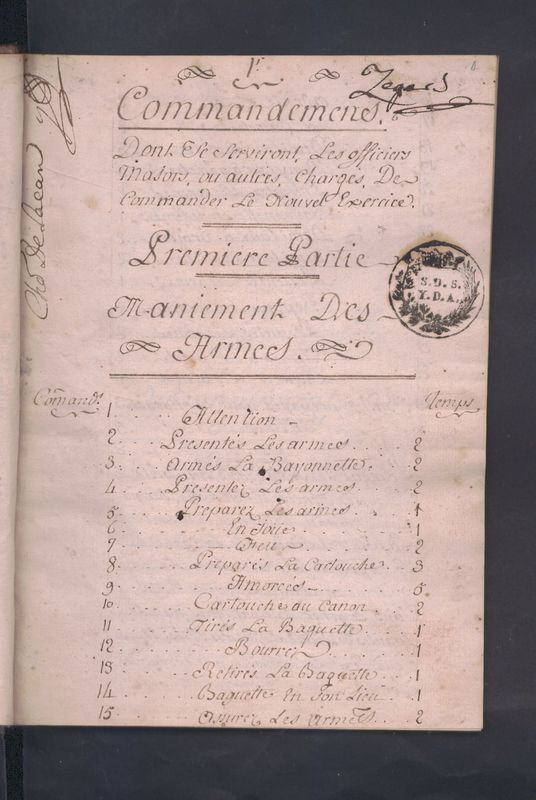 1r
Commandemens.
Dont Se Serviront, Les officiers
Majors, ou autres, chargés, De
Commander Le Nouvel Exercice.
Premiere Partie
Maniement Des
Armes.
Comands. Temps
1 Attention
2 Presentés Les armes 2
3 Armés La Bayonnette. 2
4 Presentez Les armes 2
5 Preparez Les armes 1
6 En Joüe 1
7 Feu 2
8 Préparés La Cartouche 3
9 Amorcés 5
10 Cartouche au Canon 2
11 Tirés La Baguette 1
12 Bourrez 1
13 Retirés La Baguette 1
14 Baguette En Son Lieu 1
15 Assurez Les Armes 2
S.D.S.
Y.D.A.